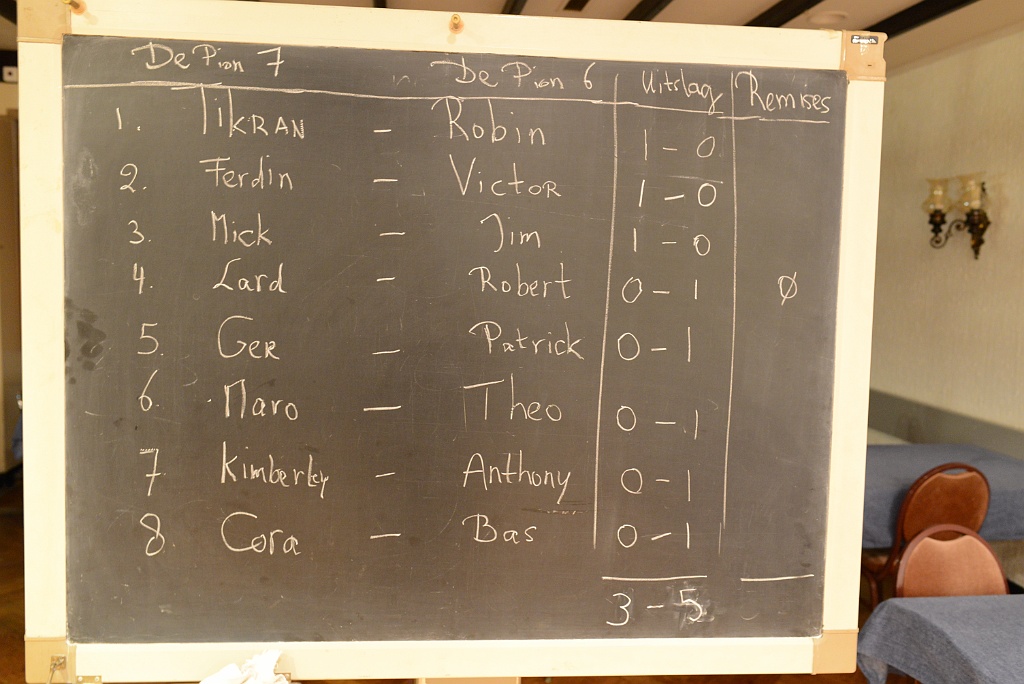 De Pion 7 De Pion 6 Uitslag Remises
1. TIKRAN – Robin 1 – 0
2. Ferdin – Victor 1 – 0
3. Mick – Jim 1 – 0
4. Lard – Robert 0 – 1 Ø
5. GER – Patrick 0 – 1
6. Maro — Theo 0 – 1
7 Kimberley – Anthony 0 – 1
8. Cora – Bas 0 – 1
3 – 5